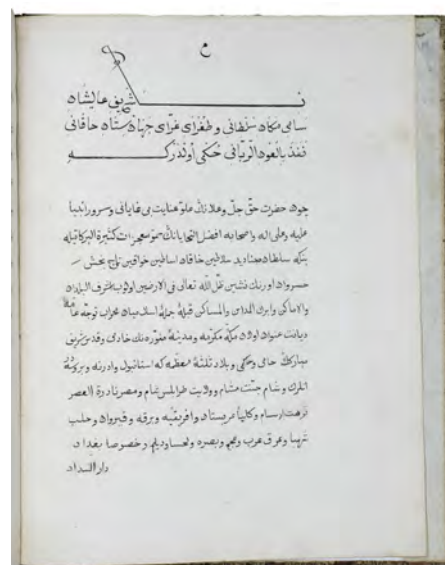 نشان شريف عاليشان
سامى مكان سلطانى و طغراى غراى جهان ستان خاقانى
نفذ بالعون الربانى حكمى اولدركه
چون حضرت حق جل وعلانك علو عنايت بى غاياتى و سرور انبيا
عليه وعلى اله واصحابه افضل التحاياتك معجزات كثيرة البركاتيله
بنكه سلطان سلاطين خاقان اساطين خواقين تاج بخش
خسروان اورنك نشين ظل الله تعالى فى الارضين اولوب اشرف البلدان
والاماكن وابرك المداين والمساكن قبلۀ جملۀ اسلاميان محراب توجه عامۀ
ديانت عنوان اولان مكۀ مكرمه ومدينۀ منوره نك خادمى وقدس شريف
مباركك حامى وحاكمى وبلاد ثلثۀ معظمه كه استانبول وادرنه وبروسه در
انلرك وشام جنت مشام وولايت طرابلس شام ومصر نادرة العصر
وكليا عربستان وافريقيه وبرقه وقيروان وحلب
وعراق عرب وعجم وبصره ولحسا وديلم وخصوصا بغداد
دار السداد